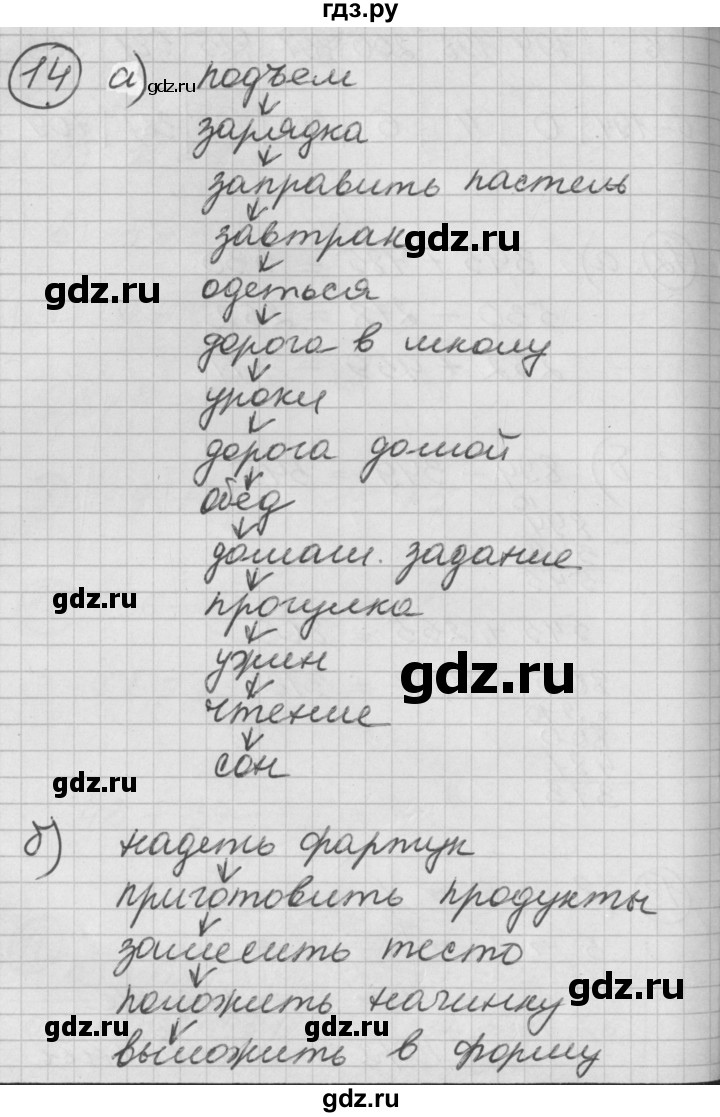 гдз.ру
14 а) gdz.ru подъем
↓
зарядка
↓
заправить пастель
↓
завтрак gdz.ru
↓
gdz.ru одеться
↓
дорога в школу
↓
уроки
↓
дорога домой
↓
обед
↓
домаш. задание
↓
gdz.ru прогулка
↓
ужин gdz.ru
↓
чтение
↓
gdz.ru сон
б) надеть фартук
↓
приготовить продукты
↓
замесить тесто
↓
положить начинку gdz.ru
↓
gdz.ru gdz.ru
выложить в форму
гдз.ру